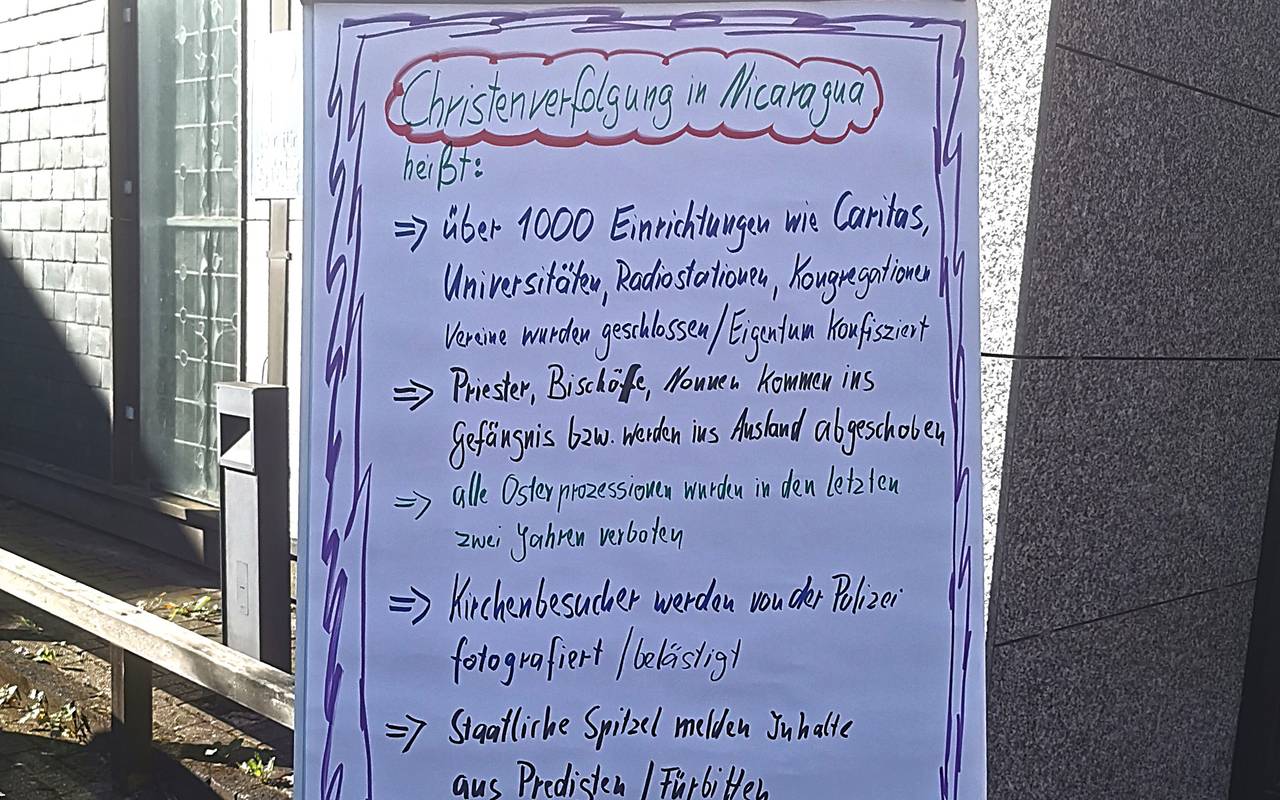 Christenverfolgung in Nicaragua
heißt:
=> über 1000 Einrichtungen wie Caritas,
Universitäten, Radiostationen, Kongregationen
Vereine wurden geschlossen/Eigentum konfisziert
=> Priester, Bischöfe, Nonnen kommen ins
Gefängnis bzw. werden ins Ausland abgeschoben
=> alle Osterprozessionen wurden in den letzten
zwei Jahren verboten
=> Kirchenbesucher werden von der Polizei
fotografiert /belästigt
=> Staatliche Spitzel melden Inhalte
aus Predigten / Fürbitten